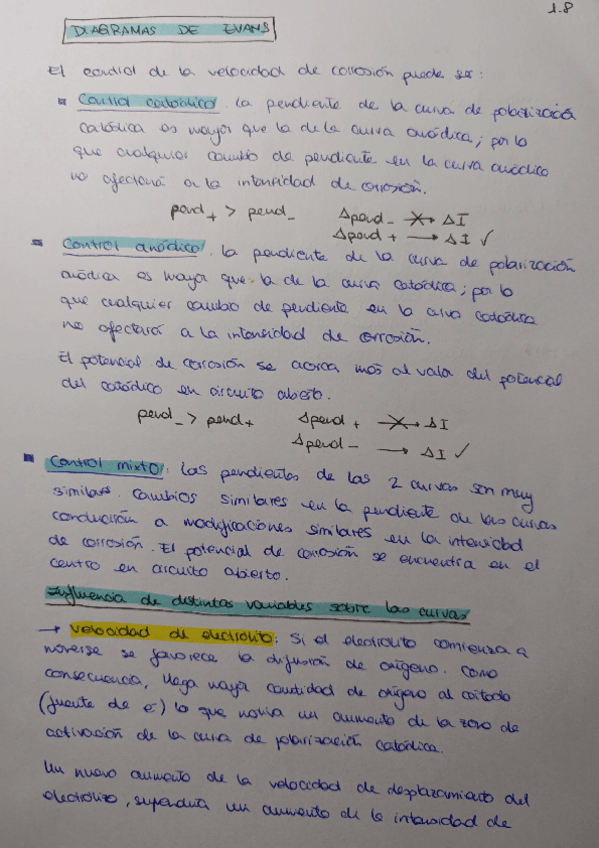 1.8
DIAGRAMAS DE EVANS
El control de la velocidad de corrosión puede ser:
Control catódico. La pendiente de la curva de polarización
catódica es mayor que la de la curva anódica; por lo
que cualquier cambio de pendiente en la curva anódica
no afectará a la intensidad de corrosión.
pend+ > pend- Δpend- ✗→ ΔI
Δpend+ → ΔI ✓
Control anódico. La pendiente de la curva de polarización
anódica es mayor que la de la curva catódica; por lo
que cualquier cambio de pendiente en la curva catódica
no afectará a la intensidad de corrosión.
El potencial de corrosión se acerca más al valor del potencial
del catódico en circuito abierto.
pend- > pend+ Δpend+ ✗→ ΔI
Δpend- → ΔI ✓
Control mixto: Las pendientes de las 2 curvas son muy
similares. Cambios similares en la pendiente de las curvas
conducirán a modificaciones similares en la intensidad
de corrosión. El potencial de corrosión se encuentra en el
centro en circuito abierto.
Influencia de distintas variables sobre las curvas
→ Velocidad de electrolito: Si el electrolito comienza a
moverse se favorece la difusión de oxígeno. Como
consecuencia, llega mayor cantidad de oxígeno al cátodo
(fuente de e-) lo que un aumento de la zona de
activación de la curva de polarización catódica.
Un nuevo aumento de la velocidad de desplazamiento del
electrolito, un aumento de la intensidad de